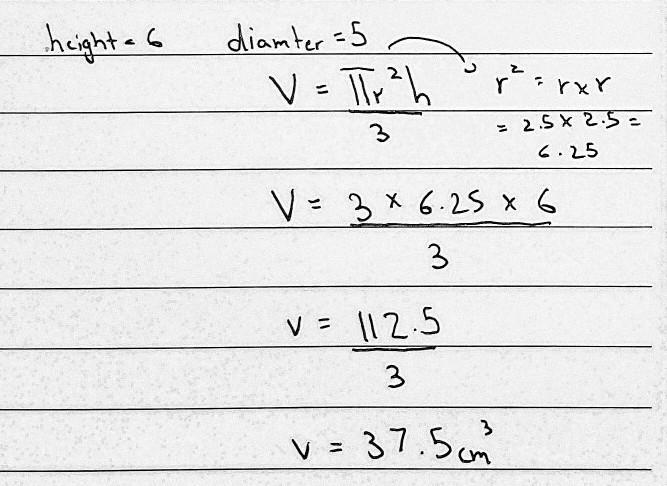 height = 6 diamter = 5
V = πr²h / 3
r² = r x r
= 2.5 x 2.5 =
6.25
V = 3 x 6.25 x 6 / 3
v = 112.5 / 3
v = 37.5 cm³